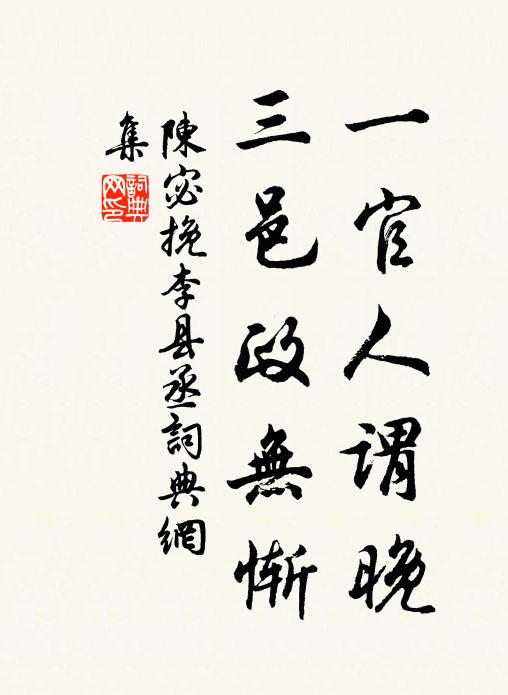 一官人謂晚
三邑政無慚
陳宓挽李县丞詞典網
集
詞典网印